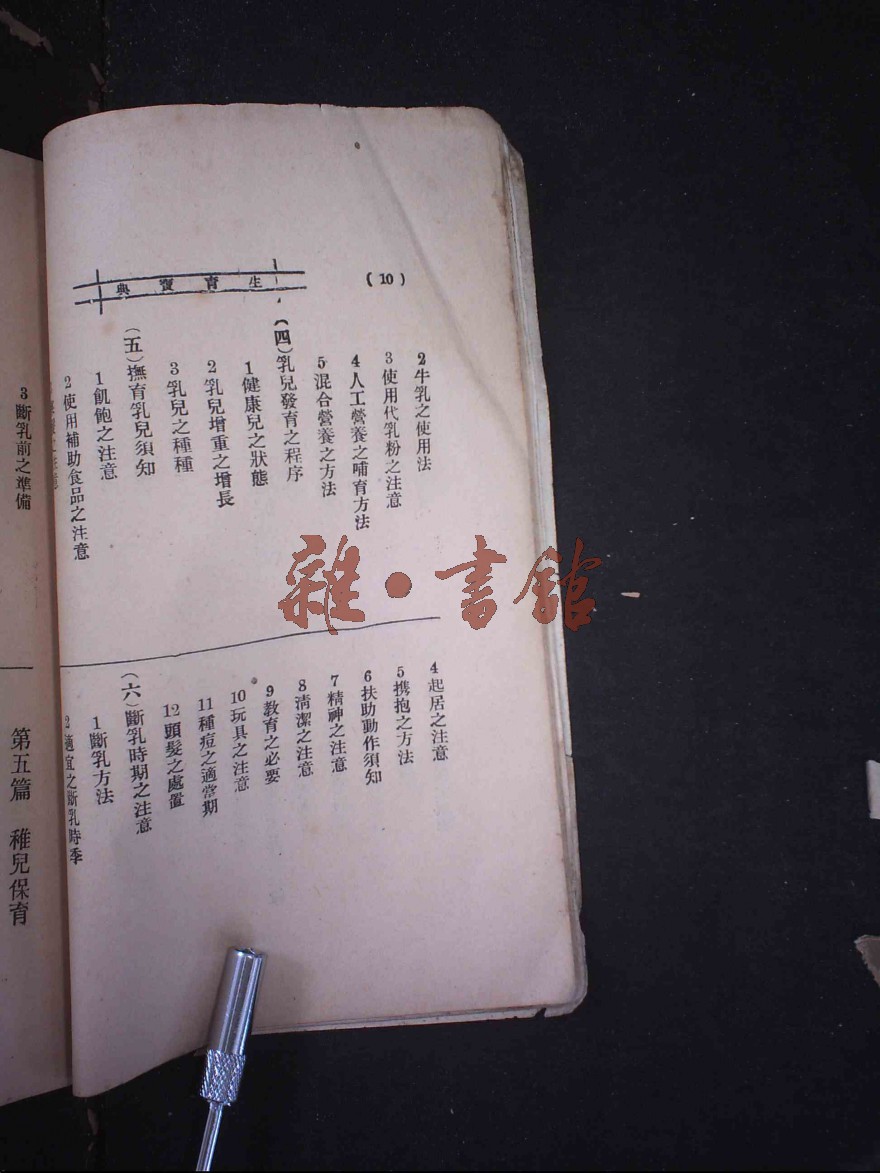 生育寶典
(10)
2牛乳之使用法
3使用代乳粉之注意
4人工營養之哺育方法
5混合營養之方法
(四)乳兒發育之程序
1健康兒之狀態
2乳兒增重之增長
3乳兒之種種
(五)撫育乳兒須知
1飢飽之注意
2使用補助食品之注意
4起居之注意
5携抱之方法
6扶助動作須知
7精神之注意
8清潔之注意
9教育之必要
10玩具之注意
11種痘之適當期
12頭髮之處置
(六)斷乳時期之注意
1斷乳方法
2適宜之斷乳時季
3斷乳前之準備
第五篇 稚兒保育
雜·書館